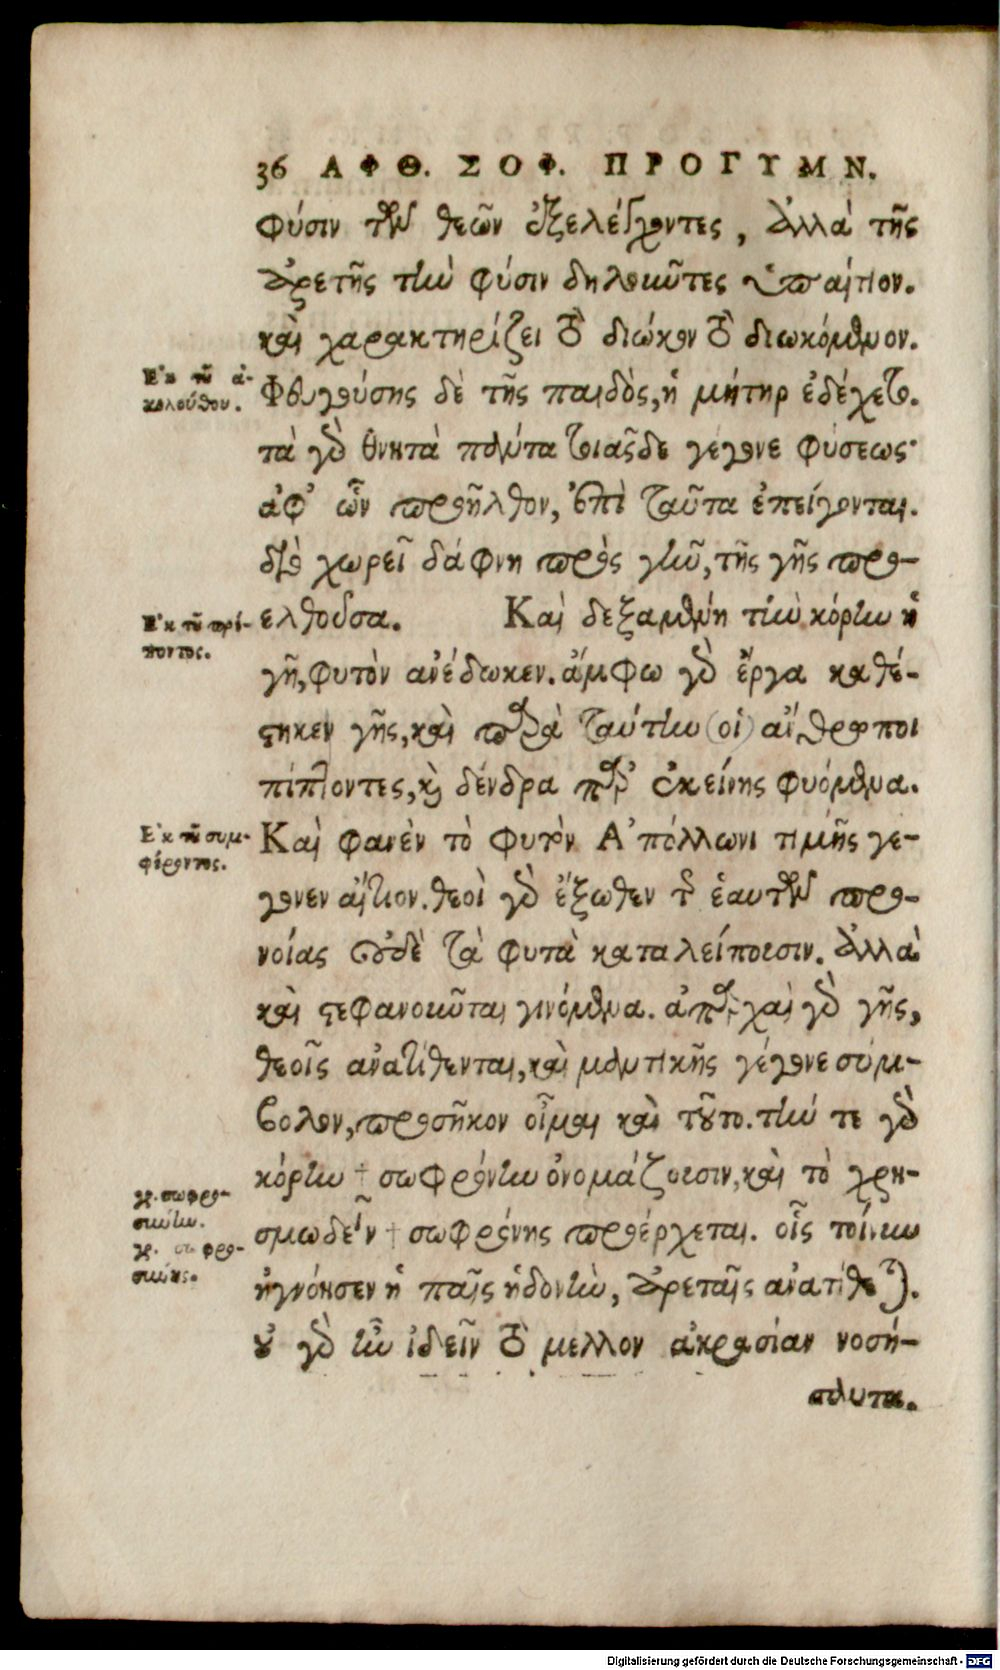 36 ΑΦΘ. ΣΟΦ. ΠΡΟΓΥΜΝ.
φύσιν τῶν θεῶν ἐξελέγχοντες, ἀλλὰ τῆς
ἀρετῆς τὴν φύσιν δηλοῦντες ὑπαίτιον.
καὶ χαρακτηρίζει τὸ διώκον τὸ διωκόμενον.
Ἐκ τοῦ ἀ-
κολούθου.
Φευγούσης δὲ τῆς παιδὸς, ἡ μήτηρ ἐδέχετο.
τὰ γὰρ θνητὰ πάντα τοιᾶσδε γέγονε φύσεως·
ἀφ' ὧν προῆλθον, ἐπὶ ταῦτα ἐπείγονται.
διὸ χωρεῖ δάφνη πρὸς γῆν, τῆς γῆς προ-
ελθοῦσα. Καὶ δεξαμένη τὴν κόρην ἡ
Ἐκ τοῦ πρέ-
ποντος.
γῆ, φυτὸν ἀνέδωκεν. ἄμφω γὰρ ἔργα καθέ-
στηκεν γῆς, καὶ παρὰ ταύτην (οἱ) ἄνθρωποι
πίπτοντες, καὶ δένδρα παρ' ἐκείνης φυόμενα.
Ἐκ τοῦ συμ-
φέροντος.
Καὶ φανὲν τὸ φυτὸν Ἀπόλλωνι τιμῆς γέ-
γονεν αἴτιον. θεοὶ γὰρ ἔξωθεν τῆς ἑαυτῶν προ-
νοίας οὐδὲ τὰ φυτὰ καταλείπουσιν. ἀλλὰ
καὶ στεφανοῦνται γινόμενα. ἀπαρχαὶ γὰρ γῆς,
θεοῖς ἀνατίθενται, καὶ μαντικῆς γέγονε σύμ-
βολον, προσῆκον οἶμαι καὶ τοῦτο. τήν τε γὰρ
κόρην † σωφρόνην ὀνομάζουσιν, καὶ τὸ χρη-
γρ. σωφρο-
σύνην.
γρ. σωφρο-
σύνης.
σμωδεῖν † σωφρόνης προέρχεται. οἷς τοίνυν
ἠγνόησεν ἡ παῖς ἡδονὴν, ἀρεταῖς ἀνατίθεται.
οὐ γὰρ ἦν ἰδεῖν τὸ μέλλον ἀκρασίαν νοσή-
σαντα.